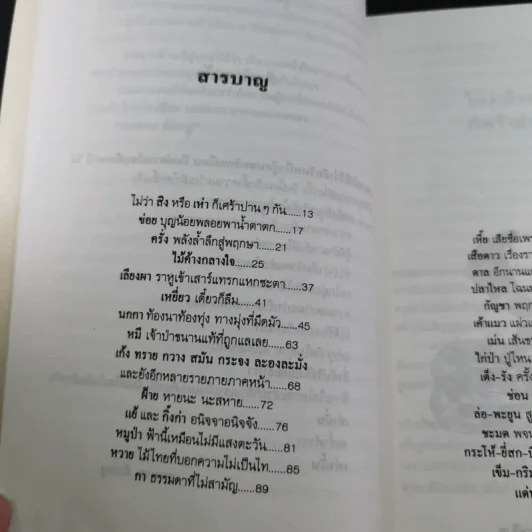 สารบาญ
ไม่ว่า สิง หรือ เห่า ก็เศร้าปาน ๆ กัน.....13
ช่อย บุญน้อยพลอยพาน้ำตาตก.....17
ครั่ง พลังล้ำลึกสู่พฤกษา.....21
ไม้ค้างกลางใจ.....25
เลียงผา ราหูเข้าเสาร์แทรกแหกชะตา.....37
เหยี่ยว เดี๋ยวก็ลืม.....41
นกกา ท้องนาท้องทุ่ง ทางมุ่งที่มืดมัว.....45
หมี เจ้าป่าขนานแท้ที่ถูกแลเลย.....63
เก้ง ทราย กวาง สมัน กระจง ละองละมั่ง
และยังอีกหลายรายภายภาคหน้า.....68
ฝ้าย ทายนะ นะสหาย.....72
แย้ และ กิ้งก่า อนิจจาอนิจจัง.....76
หมูป่า ฟ้านี้เหมือนไม่มีแสงตะวัน.....81
หวาย ไม้ไทยที่บอกความไม่เป็นไท.....85
กา ธรรมดาที่ไม่สามัญ.....89
เหี้ย เสียชื่อเพร
เสือดาว เรื่องรา
ตาล อีกนานแ
ปลาไหล โฉน
กัญชา พฤก
ค้างแมว แผ่ว
เม่น เส้นข
ไก่ป่า ปู่ไหน
เต็ง-รัง ครั้ง
ช่อน
ล่อ-พะยูน สู
ชะมด พจน
กระโห้-ยี่สก-บ
เข็ม-กริม
แด่